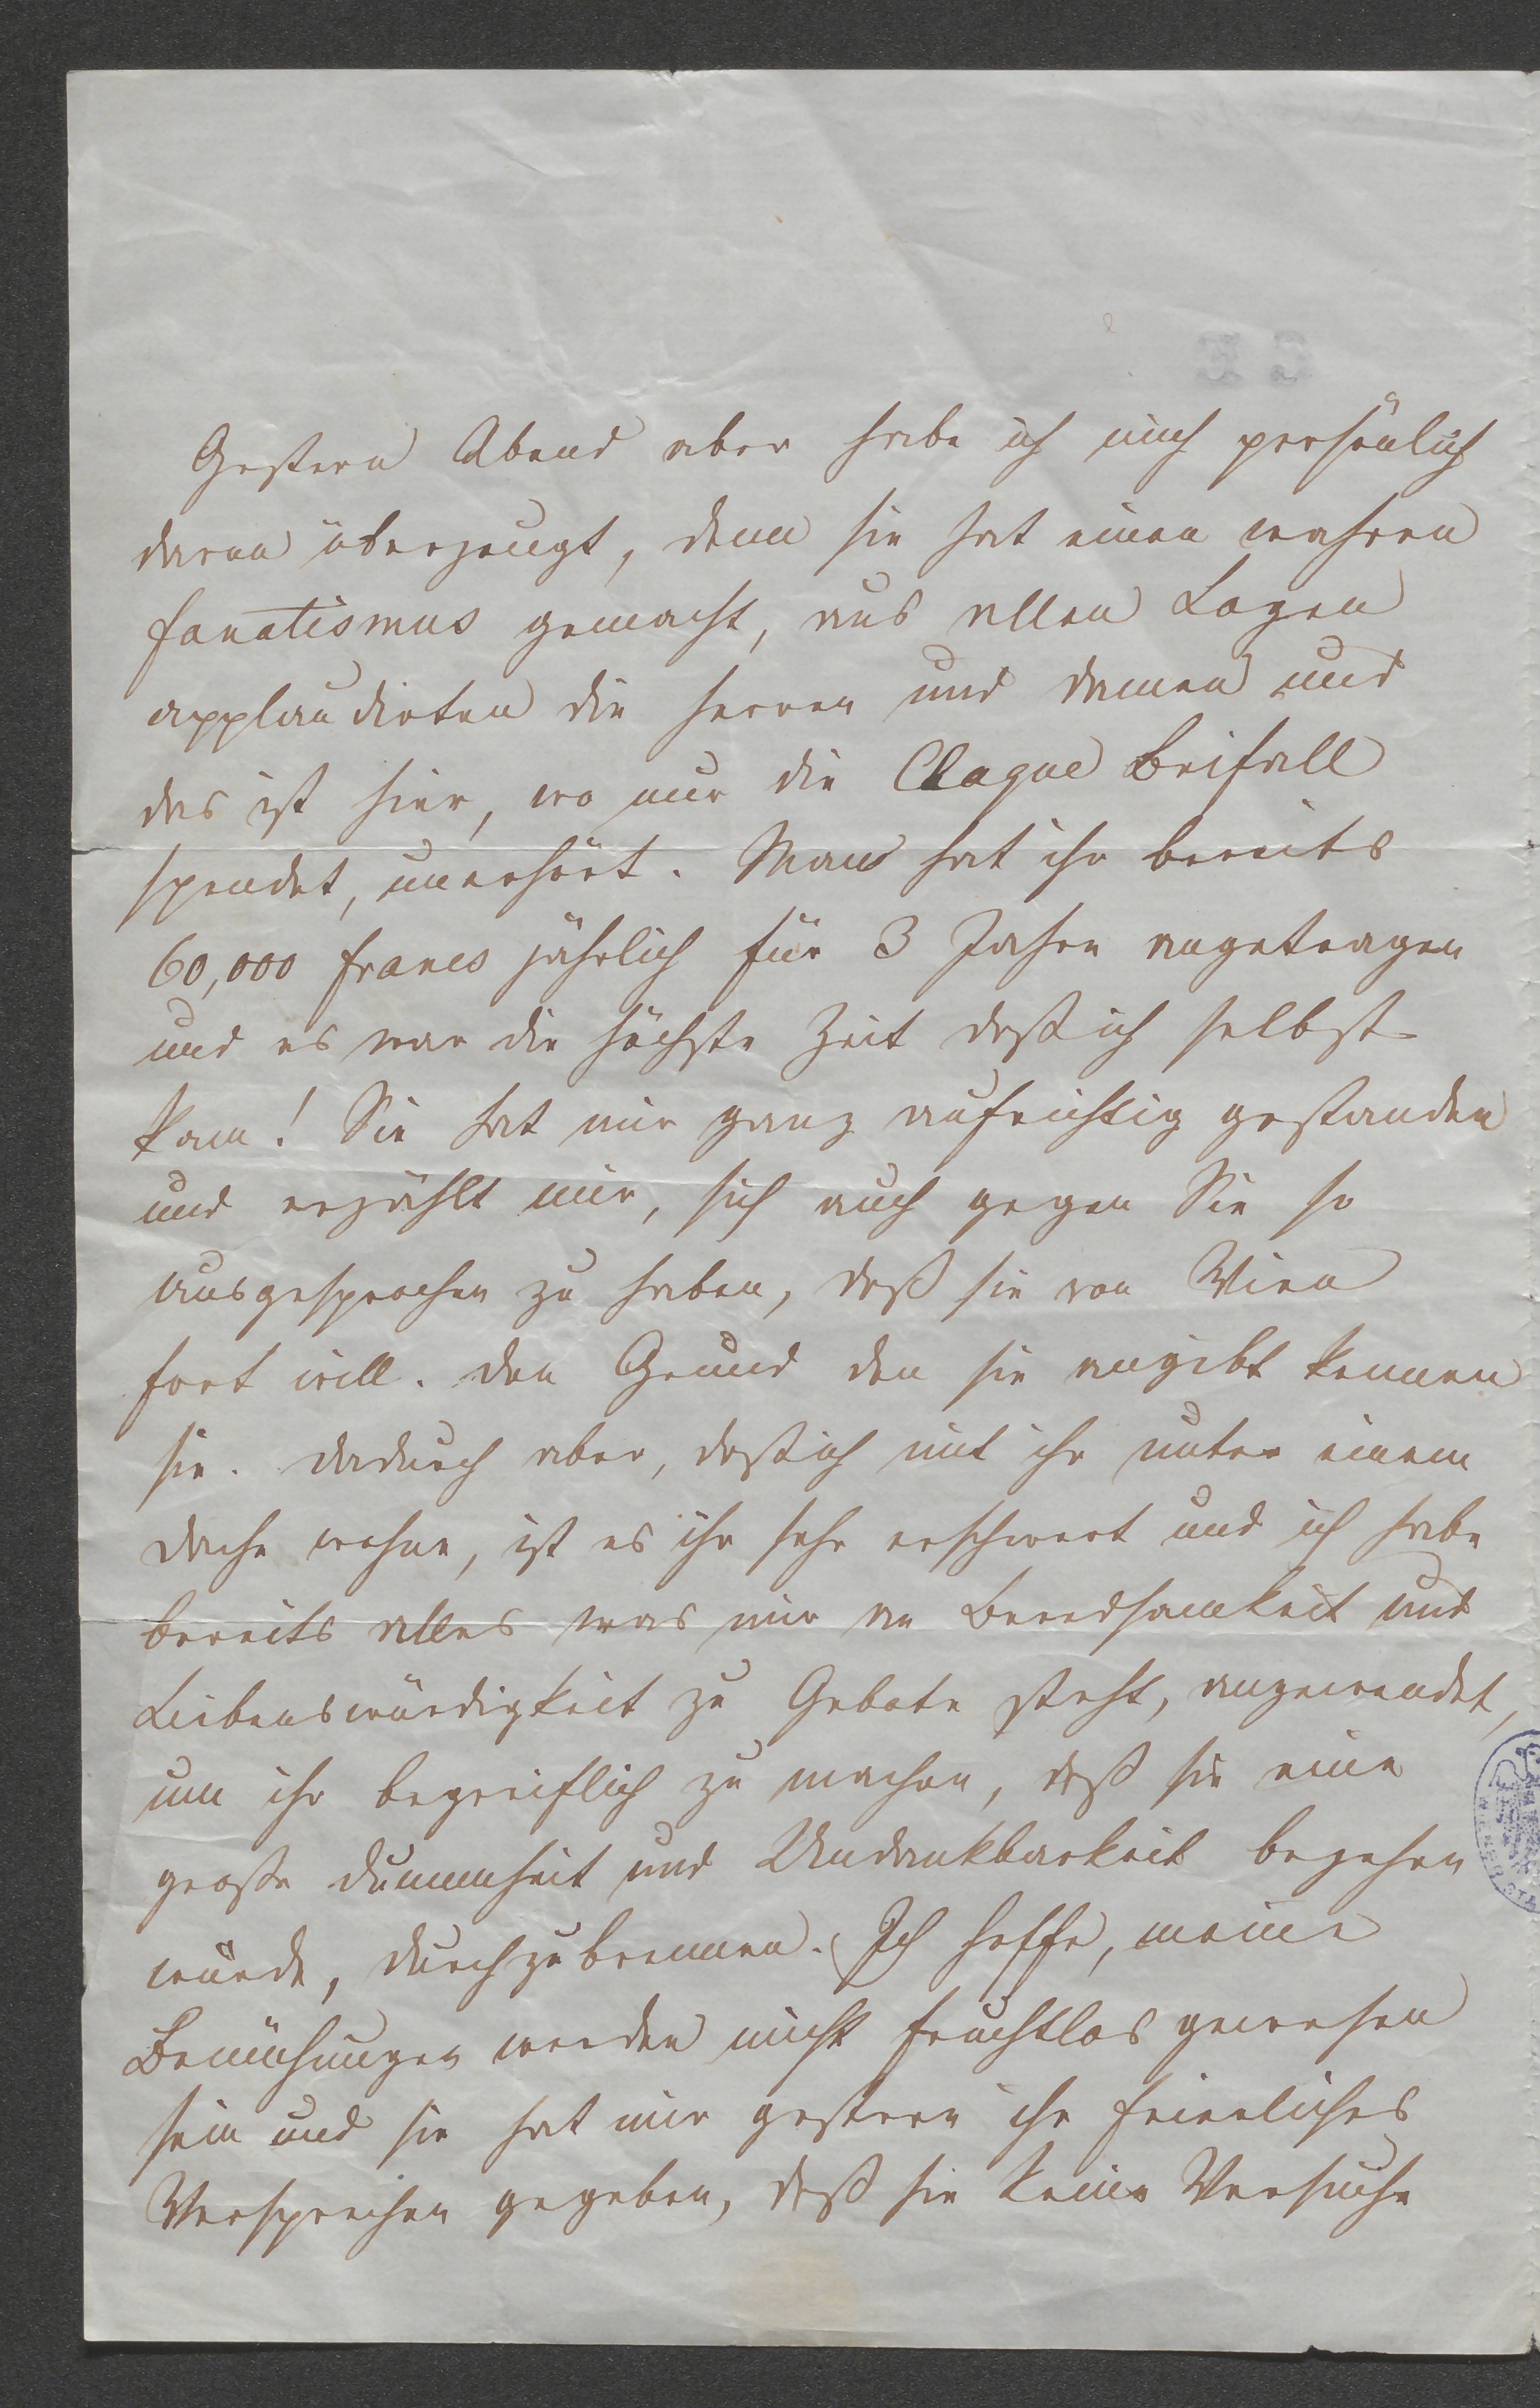 Gestern Abend aber habe ich mich persönlich
davon überzeugt, denn sie hat einen wahren
Fanatismus gemacht, aus allen Logen
applaudirten die Herren und Damen und
das ist hier, wo nur die Claque Beifall
spendet, unerhört. Man hat ihr bereits
60,000 francs jährlich für 3 Jahre angetragen
und es war die höchste Zeit daß ich selbst
kam! Sie hat mir ganz aufrichtig gestanden
und erzählt mir, sich auch gegen Sie so
ausgesprochen zu haben, daß sie von Wien
fort will. Den Grund den sie angibt kennen
sie. Dadurch aber, daß ich mit ihr unter einem
Dache wohne, ist es ihr sehr erschwert und ich habe
bereits alles was mir an Beredsamkeit und
Liebenswürdigkeit zu Gebote steht, angewendet,
um ihr begreiflich zu machen, daß sie eine
große Dummheit und Undankbarkeit begehen
würde, durchzubrennen. Ich hoffe, meine
Bemühungen werden nicht fruchtlos gewesen
sein und sie hat mir gestern ihr feierliches
Versprechen gegeben, daß sie keine Versuche